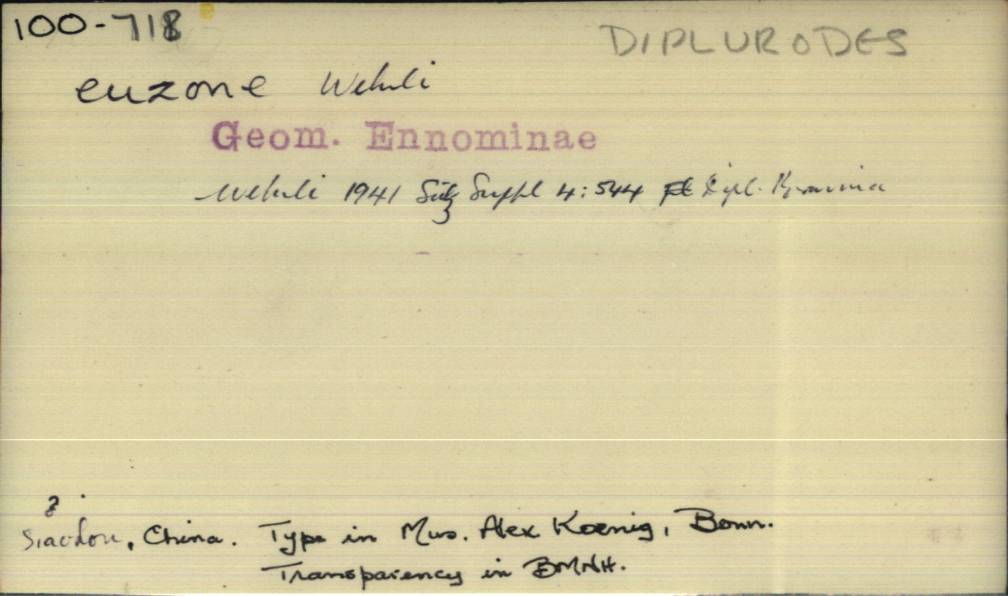 100-718
DIPLURODES
euzone Wehrli
Geom. Ennominae
Wehrli 1941 Seitz Suppl 4:544 Dipl.
?
Siaolou, China. Type in Mus. Alex Koenig, Bonn.
Transparency in BMNH.